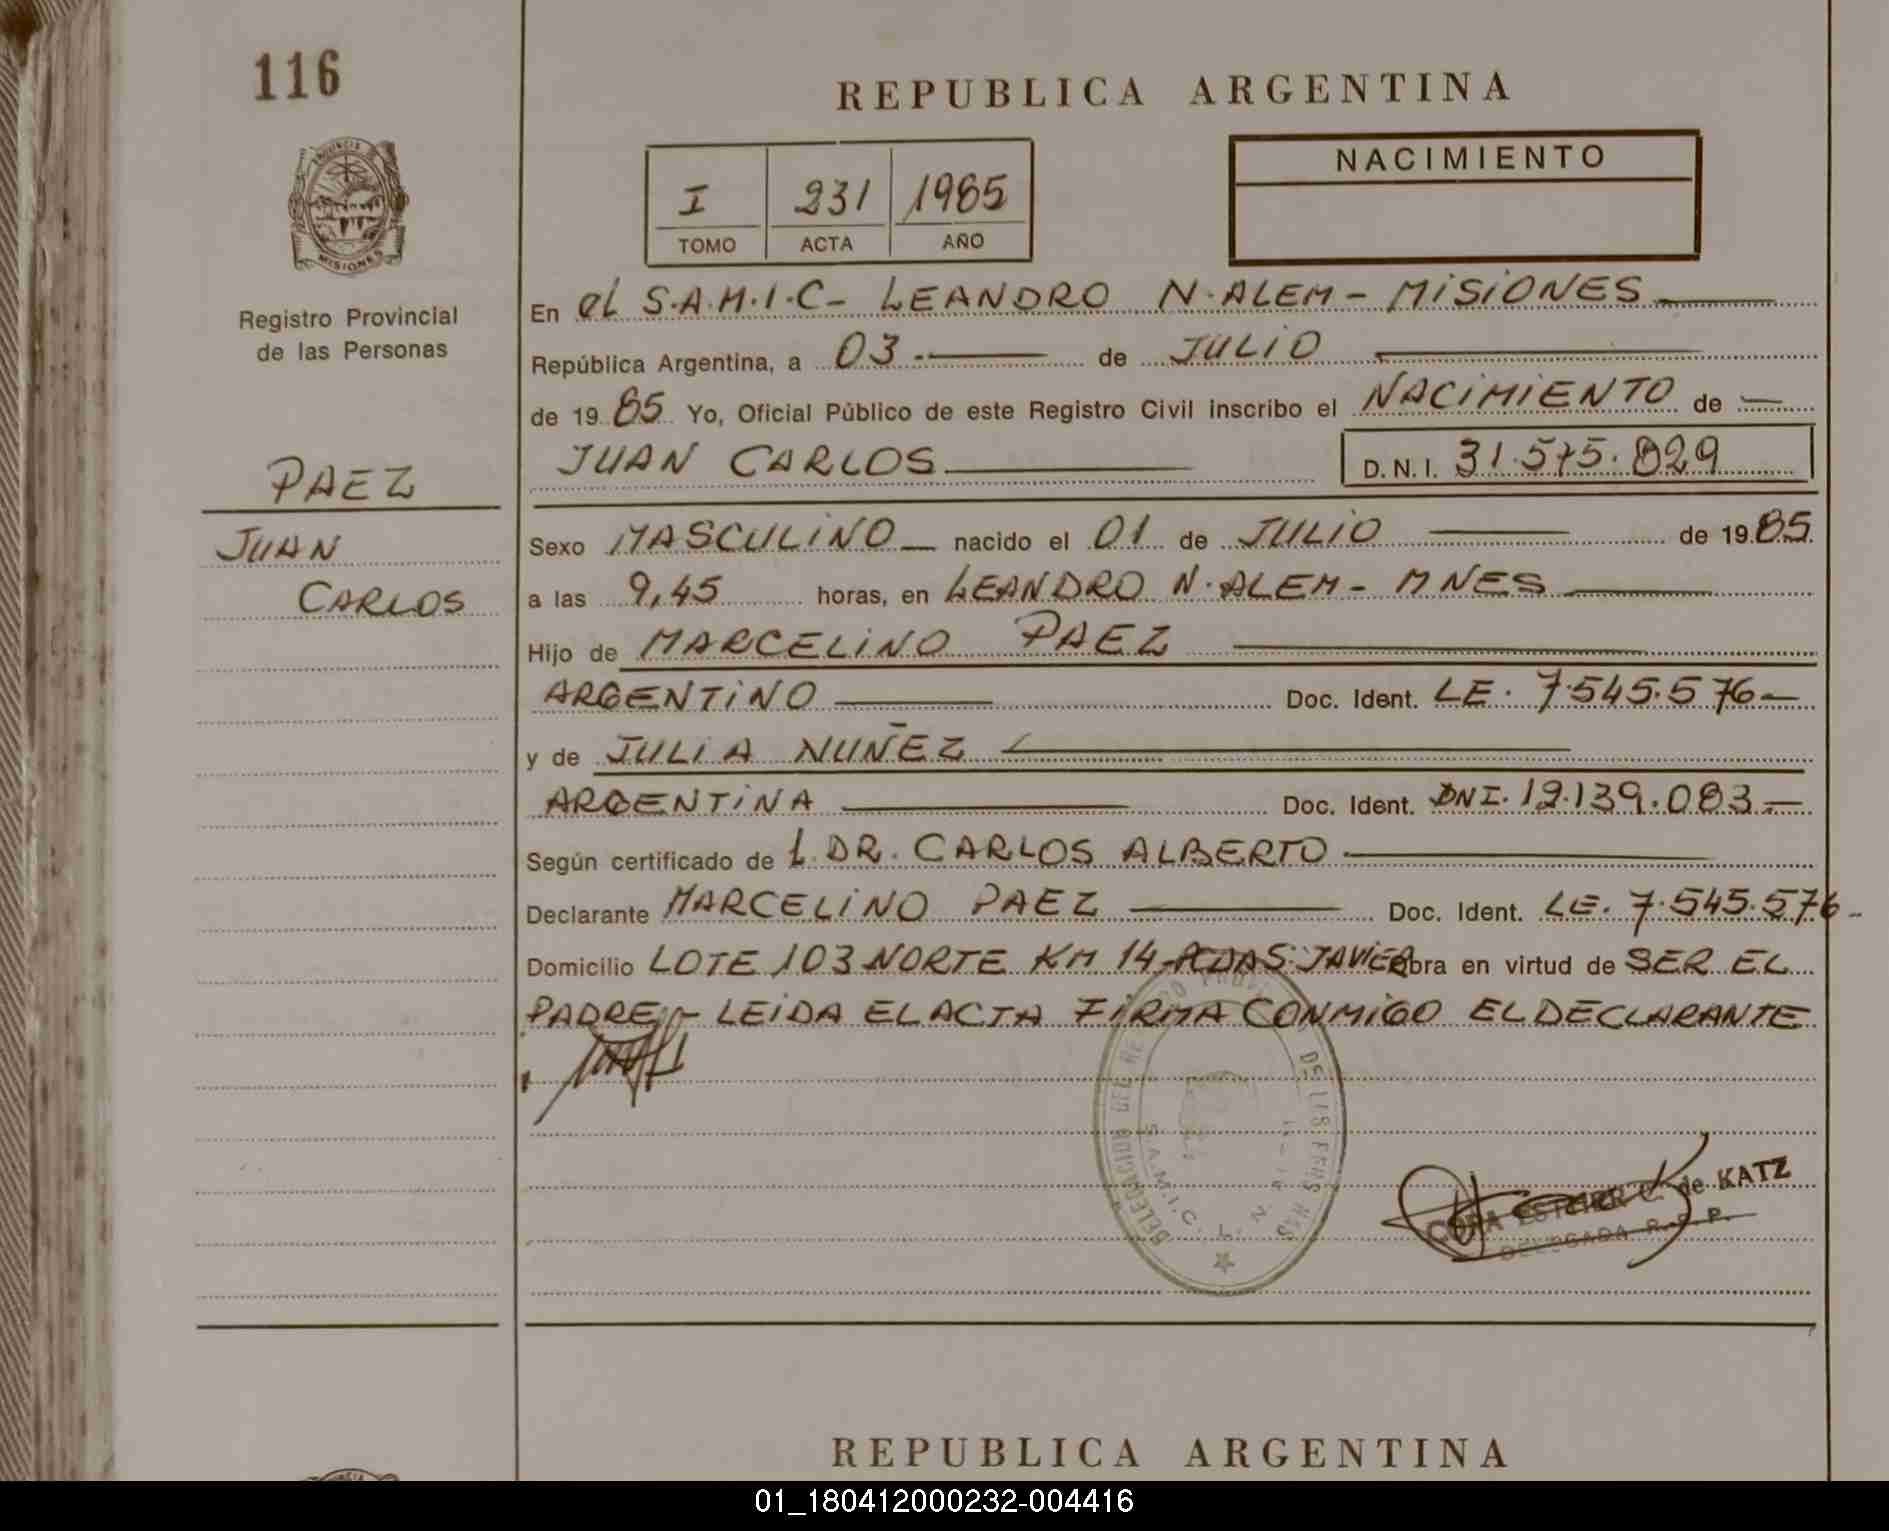 116
REPUBLICA ARGENTINA
PROVINCIA DE
MISIONES
Registro Provincial
de las Personas
I 231 1985
TOMO ACTA AÑO
NACIMIENTO
En el S.A.M.I.C- LEANDRO N. ALEM - MISIONES
República Argentina, a 03.- de JULIO
de 19 85 Yo, Oficial Público de este Registro Civil inscribo el NACIMIENTO de
JUAN CARLOS D.N.I. 31.575.829
PAEZ
JUAN
CARLOS
Sexo MASCULINO nacido el 01 de JULIO de 19 85
a las 9,45 horas, en LEANDRO N. ALEM - MNES
Hijo de MARCELINO PAEZ
ARGENTINO Doc. Ident. LE. 7.545.576-
y de JULIA NUÑEZ
ARGENTINA Doc. Ident. DNI. 12.139.083.-
Según certificado de L. DR. CARLOS ALBERTO
Declarante MARCELINO PAEZ Doc. Ident. LE. 7.545.576-
Domicilio LOTE 103 NORTE KM 14- S. JAVIER obra en virtud de SER EL
PADRE - LEIDA EL ACTA FIRMA CONMIGO EL DECLARANTE
DELEGACION DEL
S.A.M.I.C. L. N.
CORA ESTHER C. de KATZ
DELEGADA R.P.P.
REPUBLICA ARGENTINA
01_180412000232-004416